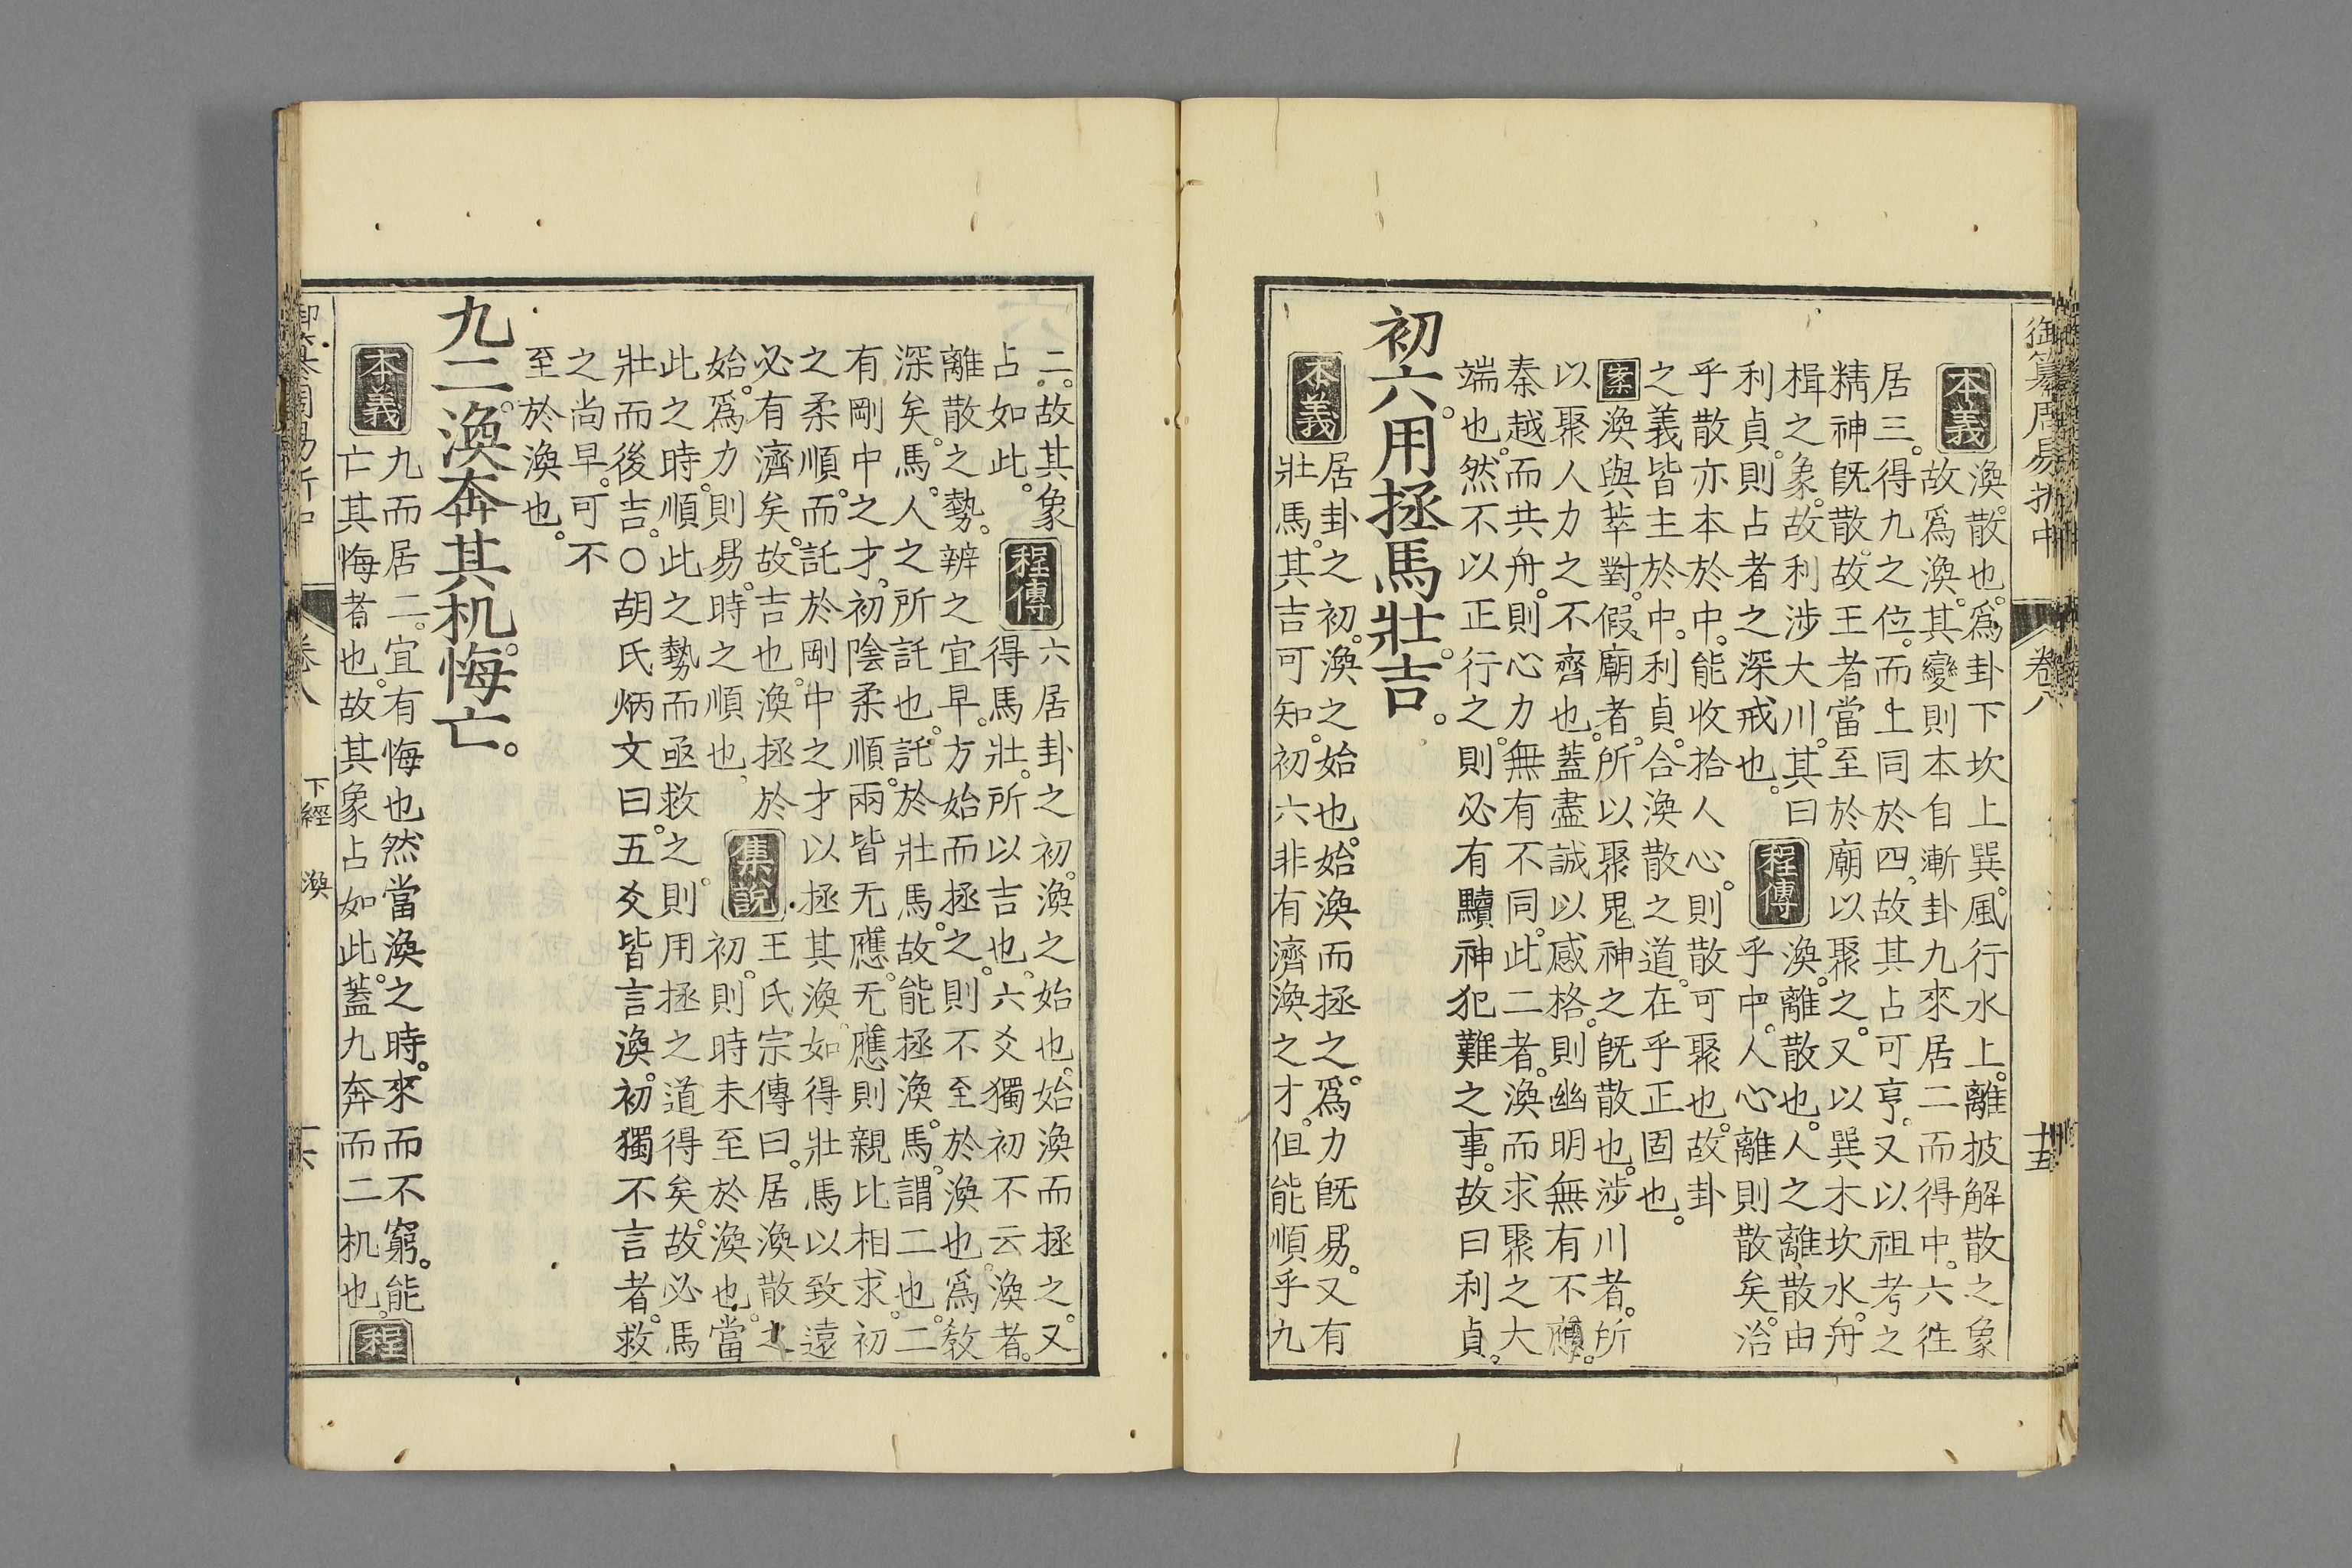 御纂周易折中　卷八　十五
本義　渙。散也。爲卦下坎上巽。風行水上。離披解散之象
故爲渙。其變則本自漸卦九來居二而得中。六往
居三。得九之位。而上同於四。故其占可亨。又以祖考之
精神旣散。故王者當至於廟以聚之。又以巽木坎水。舟
楫之象。故利涉大川。其曰
利貞。則占者之深戒也。
程傳　渙。離散也。人之離散由
乎中。人心離則散矣。治
乎散亦本於中。能收拾人心。則散可聚也。故卦
之義皆主於中。利貞。合渙散之道。在乎正固也。
案　渙與萃對。假廟者。所以聚鬼神之旣散也。涉川者。所
以聚人力之不齊也。蓋盡誠以感格。則幽明無有不應。
秦越而共舟。則心力無有不同。此二者。渙而求聚之大
端也。然不以正行之。則必有黷神犯難之事。故曰利貞。
初六。用拯馬壯。吉。
本義　居卦之初。渙之始也。始渙而拯之。爲力旣易。又有
壯馬。其吉可知。初六非有濟渙之才。但能順乎九
二。故其象
占如此。
程傳　六居卦之初。渙之始也。始渙而拯之。又
得馬壯。所以吉也。六爻獨初不云渙者。
離散之勢。辨之宜早。方始而拯之。則不至於渙也。爲教
深矣。馬。人之所託也。託於壯馬。故能拯渙。馬。謂二也。二
有剛中之才。初陰柔順。兩皆无應。无應則親比相求。初
之柔順。而託於剛中之才。以拯其渙。如得壯馬以致遠
必有濟矣。故吉也。渙。拯於
始。爲力則易。時之順也。
集說　王氏宗傳曰。居渙散之
初。則時未至於渙也。當
此之時。順此之勢而亟救之。則用拯之道得矣。故必馬
壯而後吉。○胡氏炳文曰。五爻皆言渙。初獨不言者。救
之尚早。可不
至於渙也。
九二。渙奔其机。悔亡。
本義　九而居二。宜有悔也。然當渙之時。來而不窮。能
亡其悔者也。故其象占如此。蓋九奔而二机也。程
卷八　下經　渙